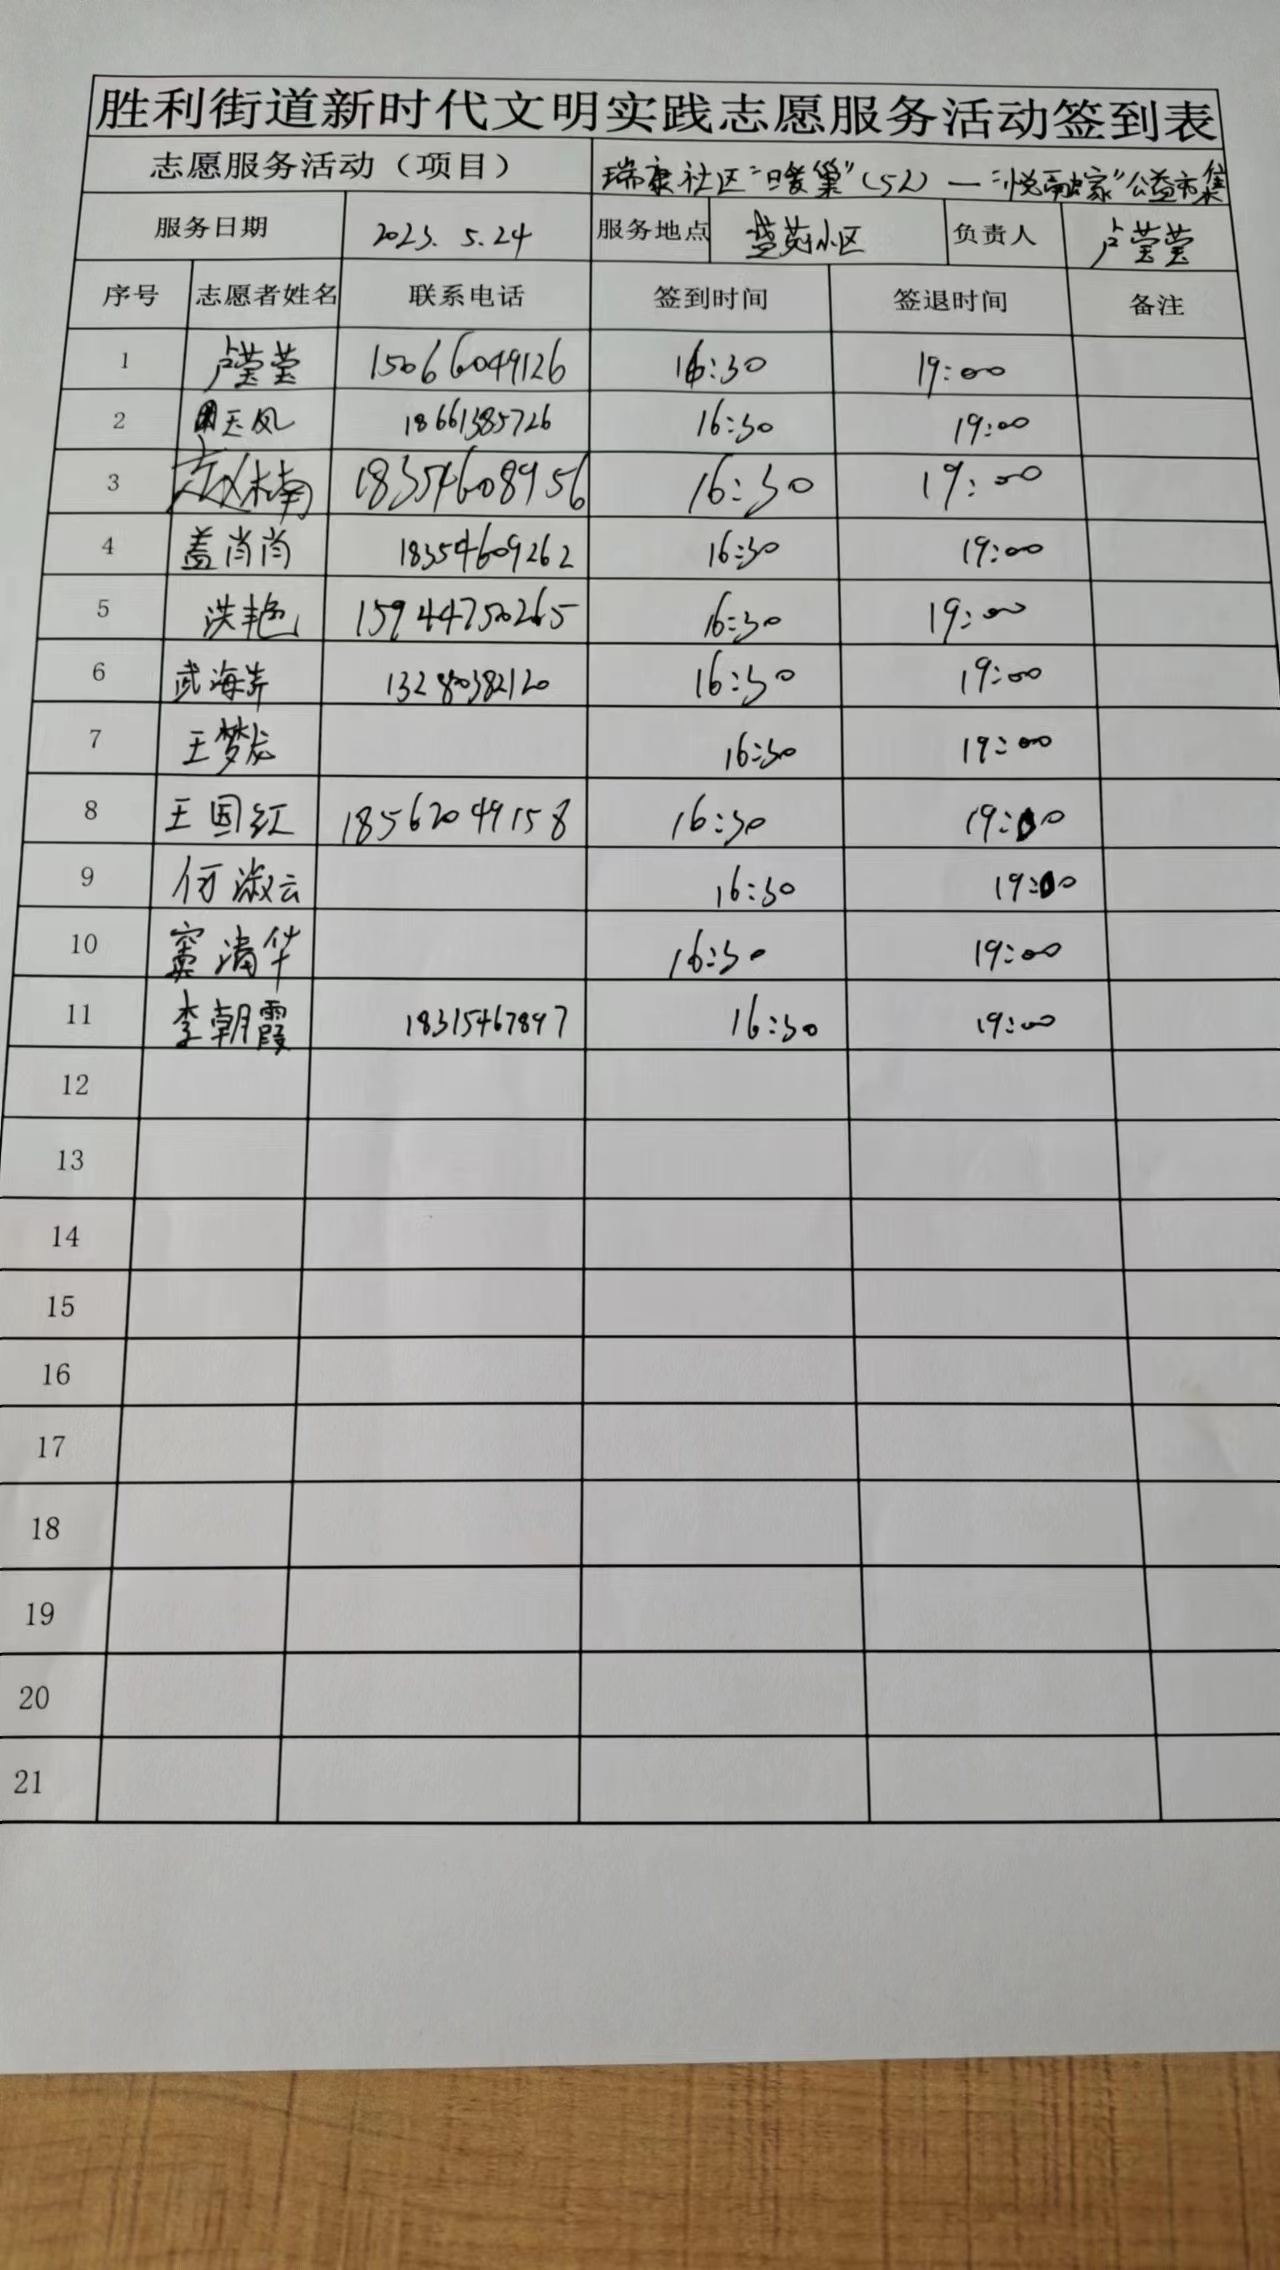 胜利街道新时代文明实践志愿服务活动签到表
志愿服务活动（项目） 瑞康社区“暖巢”（52）—“悦融家”公益市集
服务日期 2023. 5.24 服务地点 盛苑小区 负责人 卢莹莹
序号 志愿者姓名 联系电话 签到时间 签退时间 备注
1 卢莹莹 15066049126 16:30 19:00
2 玉凤 18661385726 16:30 19:00
3 赵木南 18354608956 16:30 19:00
4 盖肖肖 18354609262 16:30 19:00
5 洪艳 15944750265 16:30 19:00
6 武海 13280382120 16:30 19:00
7 王梦龙 16:30 19:00
8 王国红 18562049158 16:30 19:00
9 何淑云 16:30 19:00
10 窦清华 16:30 19:00
11 李朝霞 18315467897 16:30 19:00
12
13
14
15
16
17
18
19
20
21